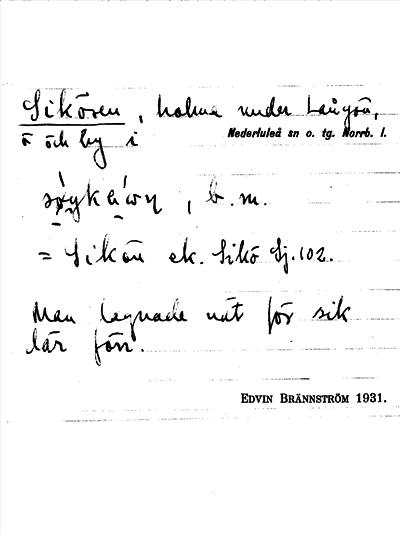 Sikören, holme under Långön,
ö och by i Nederluleå sn o. tg. Norrb. l.
, b. m.
= Sikön ek. Sikö Sj. 102.
Man lagnade nät för sik
där förr.
EDVIN BRÄNNSTRÖM 1931.